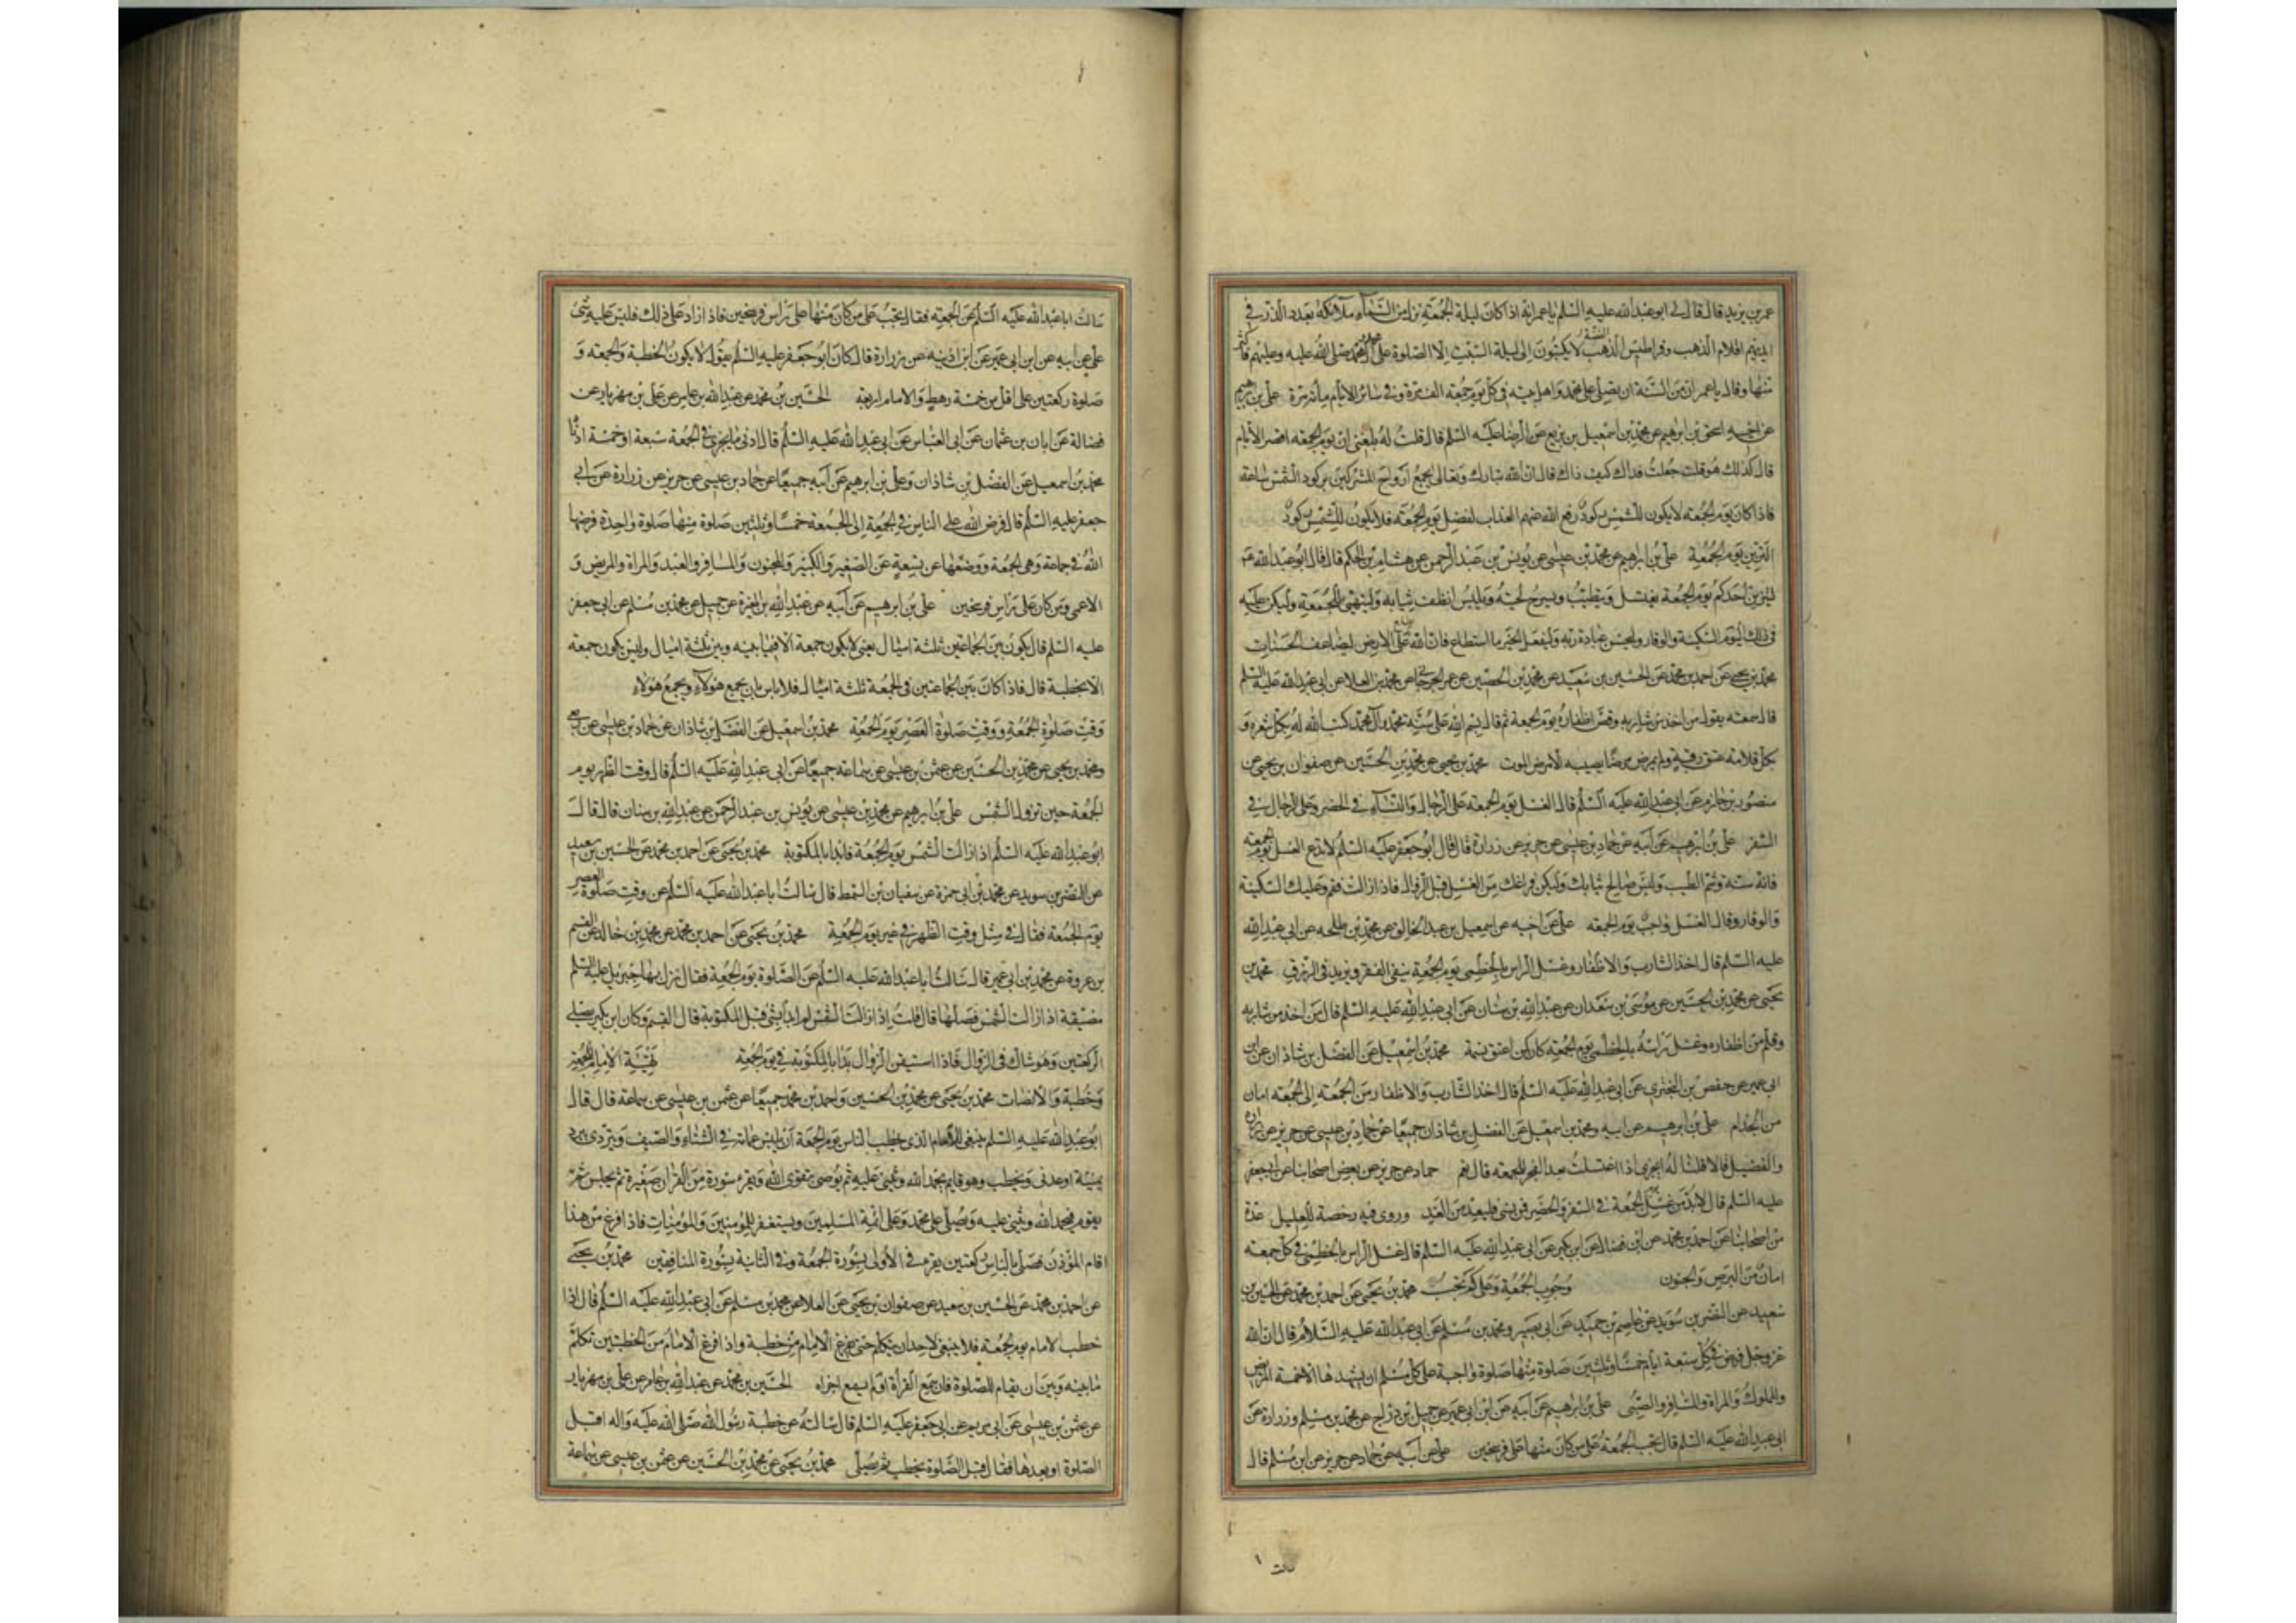 عمر بن يزيد قال قال لى ابو عبد الله عليه السلم يا عمر انه اذا كان ليلة الجمعة نزل من السماء ملائكة بعدد الذر فى
ايديهم اقلام الذهب وقراطيس الفضة لا يكتبون الى ليلة السبت الا الصلوة على محمد وال محمد صلى الله عليه وعليهم فاكثر
منها وقال يا عمر ان من السنة ان يصلى على محمد واهل بيته فى كل يوم جمعة الف مرة وفى سائر الايام مائة مرة على بن ابرهيم
عن اخيه اسحق بن ابرهيم عن محمد بن اسمعيل بن بزيع عن الرضا عليه السلم قال قلت له بلغنى ان يوم الجمعه اقصر الايام
قال كذلك هو قلت جعلت فداك كيف ذاك قال ان الله تبارك وتعالى يجمع ارواح المشركين بركود الشمس ساعة
فاذا كان يوم الجمعه لا يكون للشمس ركود رفع الله عنهم العذاب لفضل يوم الجمعه فلا يكون للشمس ركود
التزين يوم الجمعة على بن ابراهيم عن محمد بن عيسى عن يونس بن عبد الرحمن عن هشام بن الحكم قال قال ابو عبد الله عم
ليتزين احدكم يوم الجمعة يغتسل ويتطيب ويسرح لحيته ويلبس انظف ثيابه وليتهيأ للجمعة وليكن عليه
فى ذلك اليوم السكينة والوقار وليحسن عبادة ربه وليفعل الخير ما استطاع فان الله يطلع على الارض ليضاعف الحسنات
محمد بن يحيى عن احمد بن محمد عن الحسين بن سعيد عن محمد بن الحصين عن عمر الجرجانى عن محمد بن العلا عن ابى عبد الله عليه السلم
قال سمعته يقول من اخذ من شاربه وقص اظفاره يوم الجمعة ثم قال بسم الله على سنة محمد وآل محمد كتب الله له بكل شعره و
بكل قلامة عتق رقبة ولم يمرض مرضا يصيبه الا مرض الموت محمد بن يحيى عن محمد بن الحسين عن صفوان بن يحيى عن
منصور بن حازم عن ابى عبد الله عليه السلم قال الغسل يوم الجمعه على الرجال والنساء فى الحضر وعلى الرجال فى
السفر على بن ابرهيم عن ابيه عن حماد بن عيسى عن حريز عن زرارة قال قال ابو جعفر عليه السلم لا تدع الغسل يوم الجمعه
فانه سنة وشم الطيب والبس صالح ثيابك وليكن فراغك من الغسل قبل الزوال فاذا زالت فقم وعليك السكينة
والوقار وقال الغسل واجب يوم الجمعه على عن اخيه عن اسمعيل بن عبد الخالق عن محمد بن طلحه عن ابى عبد الله
عليه السلم قال اخذ الشارب والاظفار وغسل الراس بالخطمى يوم الجمعة ينفى الفقر ويزيد فى الرزق محمد بن
يحيى عن محمد بن الحسين عن موسى بن سعدان عن عبد الله بن سنان عن ابى عبد الله عليه السلم قال من اخذ من شاربه
وقلم من اظفاره وغسل راسه بالخطمى يوم الجمعه كان كمن اعتق نسمة محمد بن اسمعيل عن الفضل بن شاذان عن ابن
ابى عمير عن حفص بن البخترى عن ابى عبد الله عليه السلم قال اخذ الشارب والاظفار من الجمعه الى الجمعه امان
من الجذام على بن ابرهيم عن ابيه ومحمد بن اسمعيل عن الفضل بن شاذان جميعا عن حماد بن عيسى عن حريز عن زرارة
والفضيل قالا قلنا له ايجزى اذا اغتسلت بعد الفجر للجمعه قال نعم حماد عن حريز عن بعض اصحابنا عن ابى جعفر
عليه السلم قال لا بد من غسل الجمعة فى السفر والحضر فمن نسى فليعد من الغد وروى فيه رخصة للعليل عدة
من اصحابنا عن احمد بن محمد عن ابن فضال عن ابن بكير عن ابى عبد الله عليه السلم قال غسل الراس بالخطمى فى كل جمعه
امان من البرص والجنون وجوب الجمعة وعلى كم تجب محمد بن يحيى عن احمد بن محمد عن الحسين بن
سعيد عن النضر بن سويد عن عاصم بن حميد عن ابى بصير ومحمد بن مسلم عن ابى عبد الله عليه السلام قال ان الله
عز وجل فرض فى كل سبعة ايام خمسا وثلثين صلوة منها صلوة واجبة على كل مسلم ان يشهدها الا خمسة المريض
والمملوك والمراة والمسافر والصبى على بن ابرهيم عن ابيه عن ابن ابى عمير عن جميل بن دراج عن محمد بن مسلم وزرارة عن
ابى عبد الله عليه السلم قال تجب الجمعة على من كان منها على فرسخين على عن ابيه عن حماد عن حريز عن ابن مسلم قال
سالت ابا عبد الله عليه السلم عن الجمعه فقال يجب على من كان منها على راس فرسخين فاذا زاد على ذلك فليس عليه شئ
على عن ابيه عن ابن ابى عمير عن ابن اذينه عن زرارة قال كان ابو جعفر عليه السلم يقول لا يكون الخطبة والجمعه و
صلوة ركعتين على اقل من خمسة رهط والامام اربعه الحسين بن محمد عن عبد الله بن عامر عن على بن مهزيار عن
فضالة عن ابان بن عثمان عن ابى العباس عن ابى عبد الله عليه السلم قال ادنى ما يجزى فى الجمعة سبعة او خمسة ادناه
محمد بن اسمعيل عن الفضل بن شاذان وعلى بن ابرهيم عن ابيه جميعا عن حماد بن عيسى عن حريز عن زرارة عن ابى
جعفر عليه السلم قال فرض الله على الناس فى الجمعة الى الجمعة خمسا وثلثين صلوة منها صلوة واحدة فرضها
الله فى جماعة وهى الجمعة ووضعها عن تسعة عن الصغير والكبير والمجنون والمسافر والعبد والمراة والمريض و
الاعمى ومن كان على راس فرسخين على بن ابرهيم عن ابيه عن عبد الله بن المغيرة عن جميل عن محمد بن مسلم عن ابى جعفر
عليه السلم قال يكون بين الجماعتين ثلثة اميال يعنى لا يكون جمعة الا فيما بينه وبين ثلثة اميال وليس يكون جمعة
الا بخطبة قال فاذا كان بين الجماعتين فى الجمعة ثلثة اميال فلا باس بان يجمع هولاء ويجمع هولاء
وقت صلوة الجمعة ووقت صلوة العصر يوم الجمعة محمد بن اسمعيل عن الفضل بن شاذان عن حماد بن عيسى عن ربعى
ومحمد بن يحيى عن محمد بن الحسين عن عثمن بن عيسى عن سماعة جميعا عن ابى عبد الله عليه السلم قال وقت الظهر يوم
الجمعة حين تزول الشمس على بن ابرهيم عن محمد بن عيسى عن يونس بن عبد الرحمن عن عبد الله بن سنان قال قال
ابو عبد الله عليه السلم اذا زالت الشمس يوم الجمعة فابدا بالمكتوبة محمد بن يحيى عن احمد بن محمد عن الحسين بن سعيد
عن النضر بن سويد عن محمد بن ابى حمزة عن سفيان بن السمط قال سالت ابا عبد الله عليه السلم عن وقت صلوة العصر
يوم الجمعة فقال فى مثل وقت الظهر فى غير يوم الجمعة محمد بن يحيى عن احمد بن محمد عن محمد بن خالد عن القسم
بن عروة عن محمد بن ابى عمير قال سالت ابا عبد الله عليه السلم عن الصلوة يوم الجمعة فقال نزل بها جبرئيل عليه السلم
مضيقة اذا زالت الشمس فصلها قال قلت اذا زالت الشمس لم ابدا بشئ قبل المكتوبة قال القسم وكان ابن بكير يصلى
الركعتين وهو شاك فى الزوال فاذا استيقن الزوال بدا بالمكتوبة فى يوم الجمعة تهيئة الامام للجمعة
وخطبة والانصات محمد بن يحيى عن محمد بن الحسين واحمد بن محمد جميعا عن عثمن بن عيسى عن سماعة قال قال
ابو عبد الله عليه السلم ينبغى للامام الذى يخطب الناس يوم الجمعة ان يلبس عمامة فى الشتاء والصيف ويتردى ببرد
يمنية او عدنى ويخطب وهو قايم يحمد الله ويثنى عليه ثم يوصى بتقوى الله ويقرء سورة من القران صغيرة ثم يجلس ثم
يقوم فيحمد الله ويثنى عليه ويصلى على محمد وعلى ائمة المسلمين ويستغفر للمؤمنين والمؤمنات فاذا فرغ من هذا
اقام المؤذن فصلى بالناس ركعتين يقرء فى الاولى بسورة الجمعة وفى الثانية بسورة المنافقين محمد بن يحيى
عن احمد بن محمد عن الحسين بن سعيد عن صفوان بن يحيى عن العلا عن محمد بن مسلم عن ابى عبد الله عليه السلم قال اذا
خطب الامام يوم الجمعة فلا ينبغى لاحد ان يتكلم حتى يفرغ الامام من خطبة واذا فرغ الامام من الخطبتين تكلم
ما بينه وبين ان يقام للصلوة فان سمع القرأة او لم يسمع اجزاه الحسين بن محمد عن عبد الله بن عامر عن على بن مهزيار
عن عثمن بن عيسى عن ابى مريم عن ابى جعفر عليه السلم قال سالته عن خطبة رسول الله صلى الله عليه واله اقبل
الصلوة او بعدها فقال قبل الصلوة يخطب ثم يصلى محمد بن يحيى عن محمد بن الحسين عن عثمن بن عيسى عن سماعة